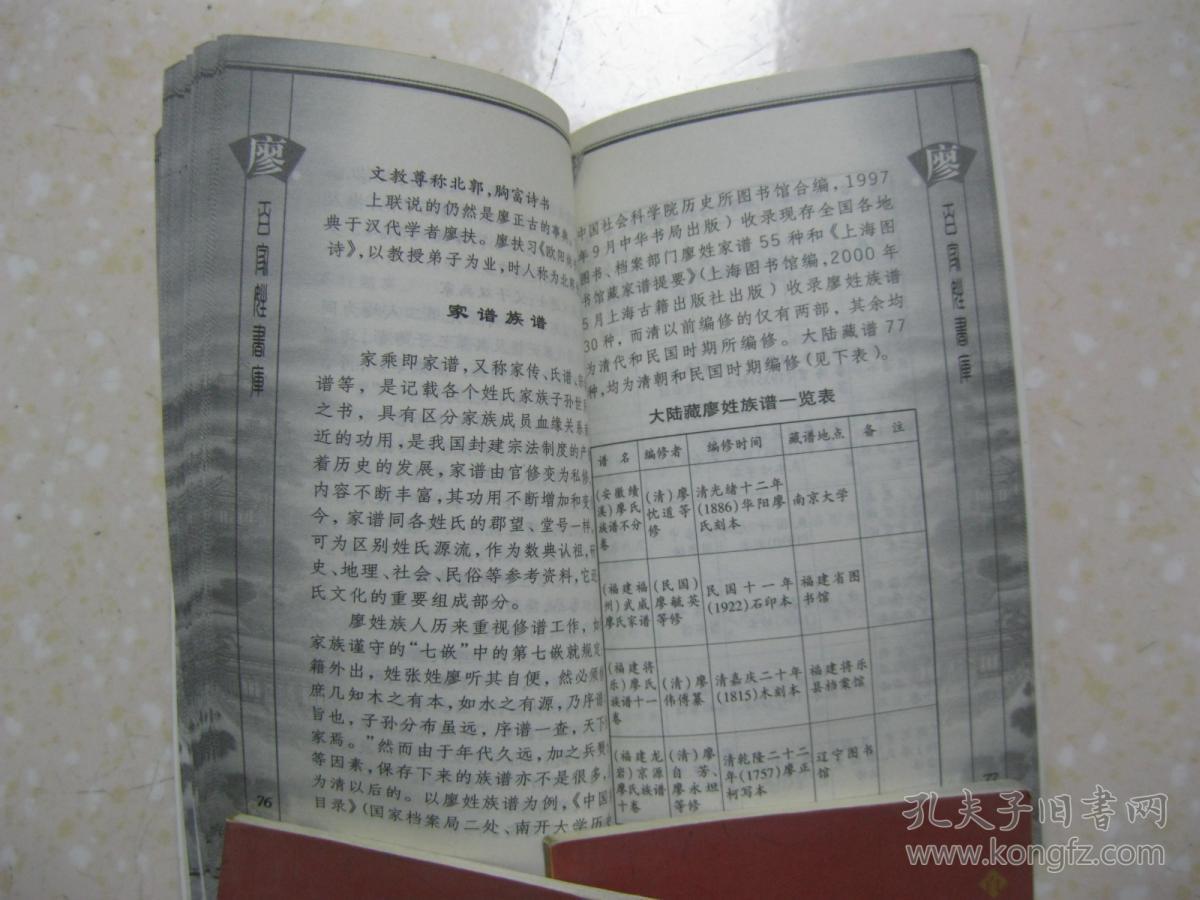 廖
百家姓書庫
文教尊称北郭，胸富诗书
上联说的仍然是廖正古的事典
典于汉代学者廖扶。廖扶习《欧阳
诗》，以教授弟子为业，时人称为北
家谱族谱
家乘即家谱，又称家传、氏谱、
谱等，是记载各个姓氏家族子孙世
之书，具有区分家族成员血缘关系
近的功用，是我国封建宗法制度的产
着历史的发展，家谱由官修变为私修，
内容不断丰富，其功用不断增加和变
今，家谱同各姓氏的郡望、堂号一样，
可为区别姓氏源流，作为数典认祖，
史、地理、社会、民俗等参考资料，它
氏文化的重要组成部分。
廖姓族人历来重视修谱工作，如
家族谨守的“七嵌”中的第七嵌就规定
籍外出，姓张姓廖听其自便，然必须
庶几知木之有本，如水之有源，乃序谱
旨也，子孙分布虽远，序谱一查，天下
家焉。”然而由于年代久远，加之兵
等因素，保存下来的族谱亦不是很多，
为清以后的。以廖姓族谱为例，《中国
目录》（国家档案局二处、南开大学历史
76
中国社会科学院历史所图书馆合编，1997
年9月中华书局出版）收录现存全国各地
图书、档案部门廖姓家谱55种和《上海图
书馆藏家谱提要》（上海图书馆编，2000年
5月上海古籍出版社出版）收录廖姓族谱
30种，而清以前编修的仅有两部，其余均
为清代和民国时期所编修。大陆藏谱77
种，均为清朝和民国时期编修（见下表）。
大陆藏廖姓族谱一览表
谱名 编修者 编修时间 藏谱地点 备注
(安徽绩 (清)廖 清光绪十二年 南京大学
溪)廖氏 忱道等 (1886)华阳廖
族谱不分 修 氏刻本
卷
(福建福 (民国) 民国十一年 福建省图
州)武威 廖毓英 (1922)石印本 书馆
廖氏家谱 等修
(福建将 (清)廖 清嘉庆二十年 福建将乐
乐)廖氏 伟傅纂 (1815)木刻本 县档案馆
族谱十一
卷
(福建龙 (清)廖 清乾隆二十二 辽宁图书
岩)京源 自芳、 年(1757)廖正 馆
廖氏族谱 廖永坦 柯写本
十卷 等修
77
廖
百家姓書庫
孔夫子旧书网
www.kongfz.com